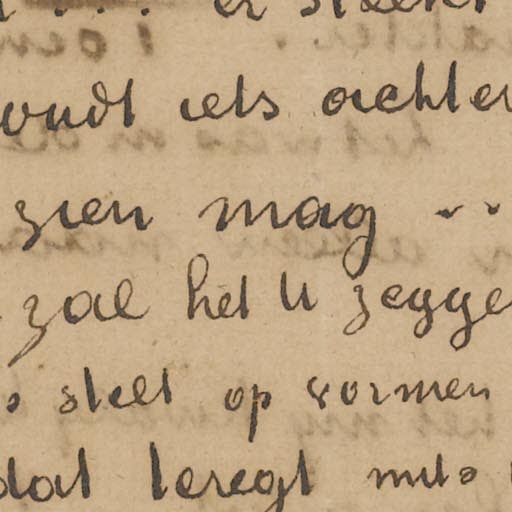 ... er steekt
oudt iets achter
zien mag ..
zal het U zegge
stelt op vormen
dat teregt mits